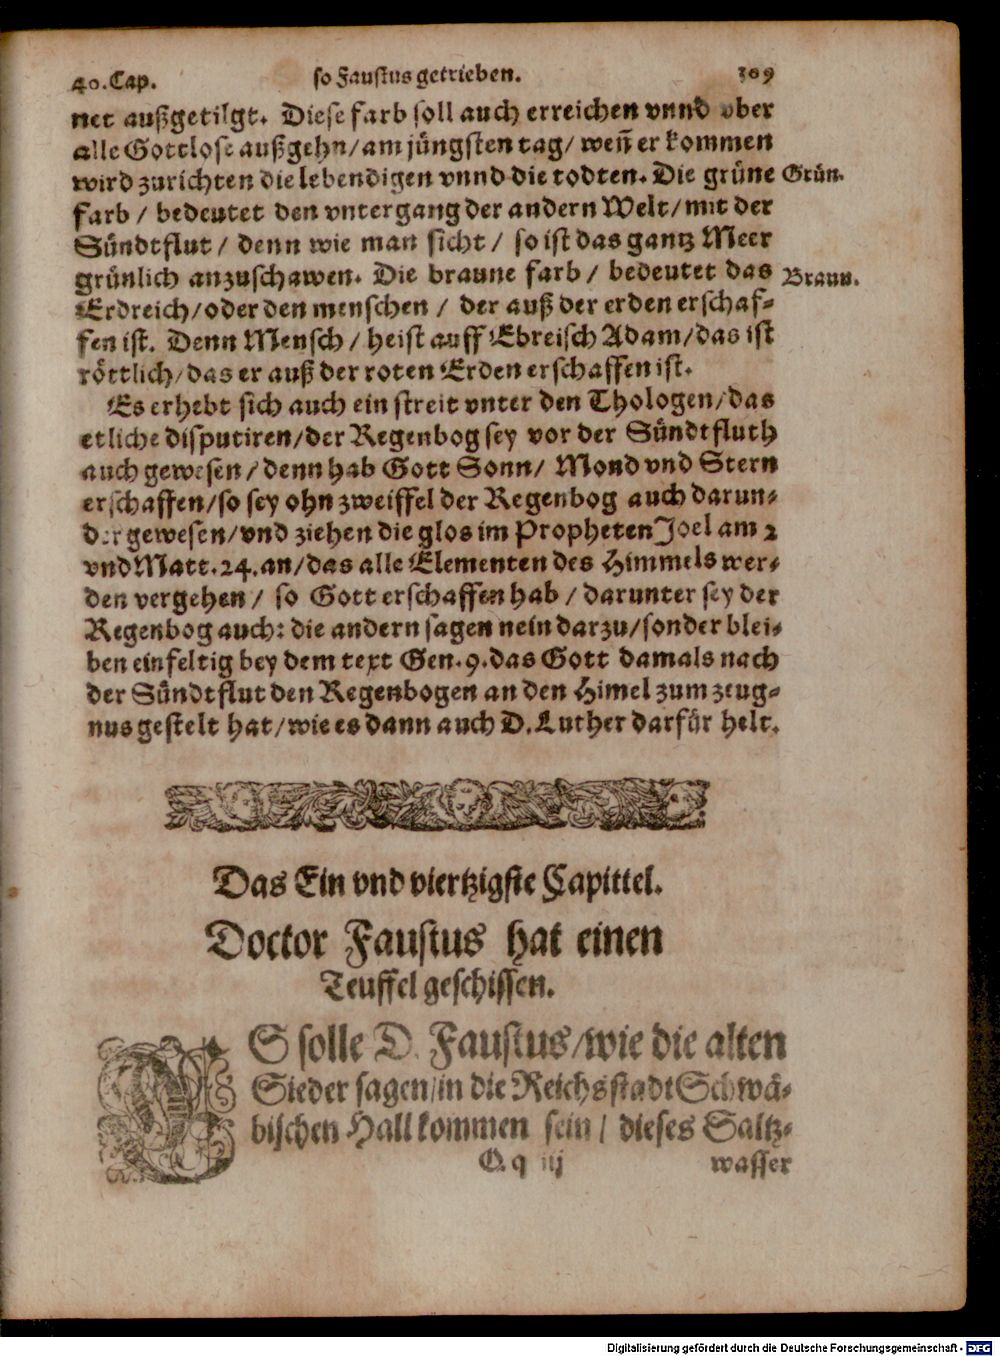 40. Cap. so Faustus getrieben. 309
net außgetilgt. Diese farb soll auch erreichen vnnd vber
alle Gottlose außgehn / am jüngsten tag / weñ er kommen
wird zurichten die lebendigen vnnd die todten. Die grüne Grün.
farb / bedeutet den vntergang der andern Welt / mit der
Sündtflut / denn wie man sicht / so ist das gantz Meer
grünlich anzuschawen. Die braune farb / bedeutet das Braun.
Erdreich / oder den menschen / der auß der erden erschaf-
fen ist. Denn Mensch / heist auff Ebreisch Adam / das ist
röttlich / das er auß der roten Erden erschaffen ist.
Es erhebt sich auch ein streit vnter den Thologen / das
etliche disputiren / der Regenbog sey vor der Sündtfluth
auch gewesen / denn hab Gott Sonn / Mond vnd Stern
erschaffen / so sey ohn zweiffel der Regenbog auch darun-
der gewesen / vnd ziehen die glos im Propheten Joel am 2
vnd Matt. 24. an / das alle Elementen des Himmels wer-
den vergehen / so Gott erschaffen hab / darunter sey der
Regenbog auch: die andern sagen nein darzu / sonder blei-
ben einfeltig bey dem text Gen. 9. das Gott damals nach
der Sündtflut den Regenbogen an den Himel zum zeug-
nus gestelt hat / wie es dann auch D. Luther darfür helt.
Das Ein vnd viertzigste Capittel.
Doctor Faustus hat einen
Teuffel geschissen.
ES solle D. Faustus / wie die alten
Sieder sagen / in die Reichsstadt Schwä-
bischen Hall kommen sein / dieses Saltz-
Q q iij wasser
Digitalisierung gefördert durch die Deutsche Forschungsgemeinschaft - DFG